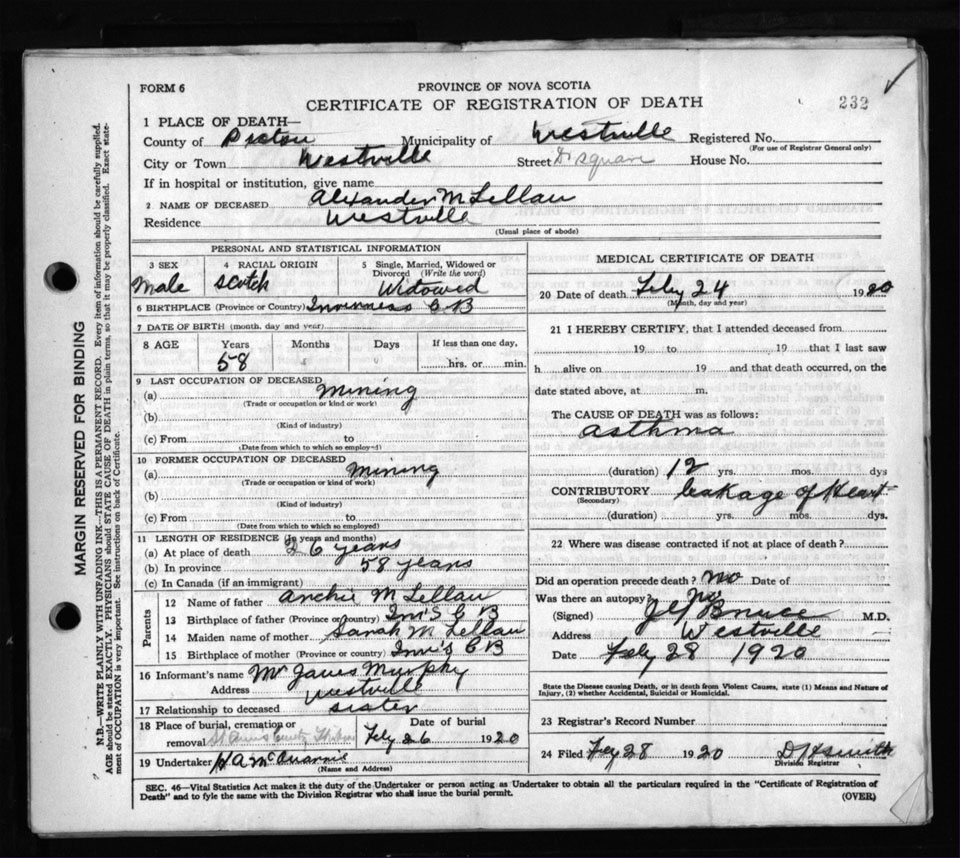 FORM 6
PROVINCE OF NOVA SCOTIA
CERTIFICATE OF REGISTRATION OF DEATH
232
1 PLACE OF DEATH—
County of Pictou Municipality of Westville Registered No.
(For use of Registrar General only)
City or Town Westville Street House No.
If in hospital or institution, give name
2 NAME OF DECEASED Alexander McLellan
Residence Westville
(Usual place of abode)
PERSONAL AND STATISTICAL INFORMATION
3 SEX 4 RACIAL ORIGIN 5 Single, Married, Widowed or Divorced (Write the word)
Male Scotch Widowed
6 BIRTHPLACE (Province or Country) Inverness C B
7 DATE OF BIRTH (month, day and year)
8 AGE Years Months Days If less than one day,
58 hrs. or min.
9 LAST OCCUPATION OF DECEASED
(a) Mining
(Trade or occupation or kind or work)
(b)
(Kind of industry)
(c) From to
(Date from which to which so employed)
10 FORMER OCCUPATION OF DECEASED
(a) Mining
(Trade or occupation or kind of work)
(b)
(Kind of industry)
(c) From to
(Date from which to which so employed)
11 LENGTH OF RESIDENCE (In years and months)
(a) At place of death 26 years
(b) In province 58 years
(c) In Canada (if an immigrant)
Parents
12 Name of father Archie McLellan
13 Birthplace of father (Province or Country) Inv's C B
14 Maiden name of mother Sarah McLellan
15 Birthplace of mother (Province or country) Inv's C B
16 Informant's name Mr James Murphy
Address Westville
17 Relationship to deceased sister
18 Place of burial, cremation or removal Date of burial
Feby 26 1920
19 Undertaker H A McQuarrie
(Name and Address)
MEDICAL CERTIFICATE OF DEATH
20 Date of death Feby 24 1920
(Month, day and year)
21 I HEREBY CERTIFY, that I attended deceased from
19 to 19 that I last saw
h alive on 19 and that death occurred, on the
date stated above, at m.
The CAUSE OF DEATH was as follows:
Asthma
(duration) 12 yrs. mos. dys
CONTRIBUTORY leakage of Heart
(Secondary)
(duration) yrs. mos. dys.
22 Where was disease contracted if not at place of death?
Did an operation precede death? No Date of
Was there an autopsy? No
(Signed) Bruce M.D.
Address Westville
Date Feby 28 1920
State the Disease causing Death, or in death from Violent Causes, state (1) Means and Nature of
Injury, (2) whether Accidental, Suicidal or Homicidal.
23 Registrar's Record Number
24 Filed Feby 28 1920 D H Smith
Division Registrar
SEC. 46—Vital Statistics Act makes it the duty of the Undertaker or person acting as Undertaker to obtain all the particulars required in the "Certificate of Registration of
Death" and to fyle the same with the Division Registrar who shall issue the burial permit.
(OVER)
MARGIN RESERVED FOR BINDING
N.B.—WRITE PLAINLY WITH UNFADING INK—THIS IS A PERMANENT RECORD. Every item of information should be carefully supplied.
AGE should be stated EXACTLY. PHYSICIANS should STATE CAUSE OF DEATH in plain terms, so that it may be properly classified. Exact statement of OCCUPATION is very important. See instructions on back of Certificate.